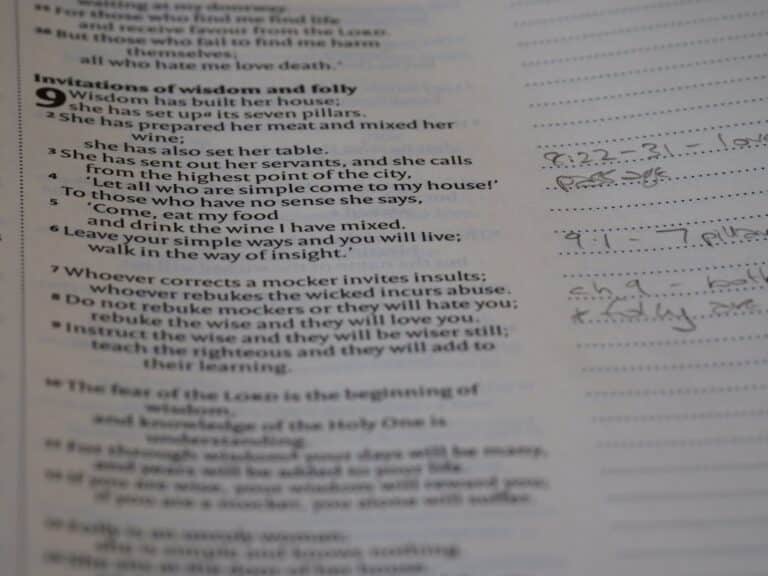 waiting at my doorway.
35 For those who find me find life
and receive favour from the LORD.
36 But those who fail to find me harm
themselves;
all who hate me love death.’
Invitations of wisdom and folly
9 Wisdom has built her house;
she has set upa its seven pillars.
2 She has prepared her meat and mixed her
wine;
she has also set her table.
3 She has sent out her servants, and she calls
from the highest point of the city,
4 ‘Let all who are simple come to my house!’
To those who have no sense she says,
5 ‘Come, eat my food
and drink the wine I have mixed.
6 Leave your simple ways and you will live;
walk in the way of insight.’
7 Whoever corrects a mocker invites insults;
whoever rebukes the wicked incurs abuse.
8 Do not rebuke mockers or they will hate you;
rebuke the wise and they will love you.
9 Instruct the wise and they will be wiser still;
teach the righteous and they will add to
their learning.
10 The fear of the LORD is the beginning of
wisdom,
and knowledge of the Holy One is
understanding.
11 For through wisdomb your days will be many,
and years will be added to your life.
12 If you are wise, your wisdom will reward you;
if you are a mocker, you alone will suffer.
13 Folly is an unruly woman;
she is simple and knows nothing.
14 She sits at the door of her house,
8:22-31 -
passage
9:1 - 7
ch 9 -
+ folly are